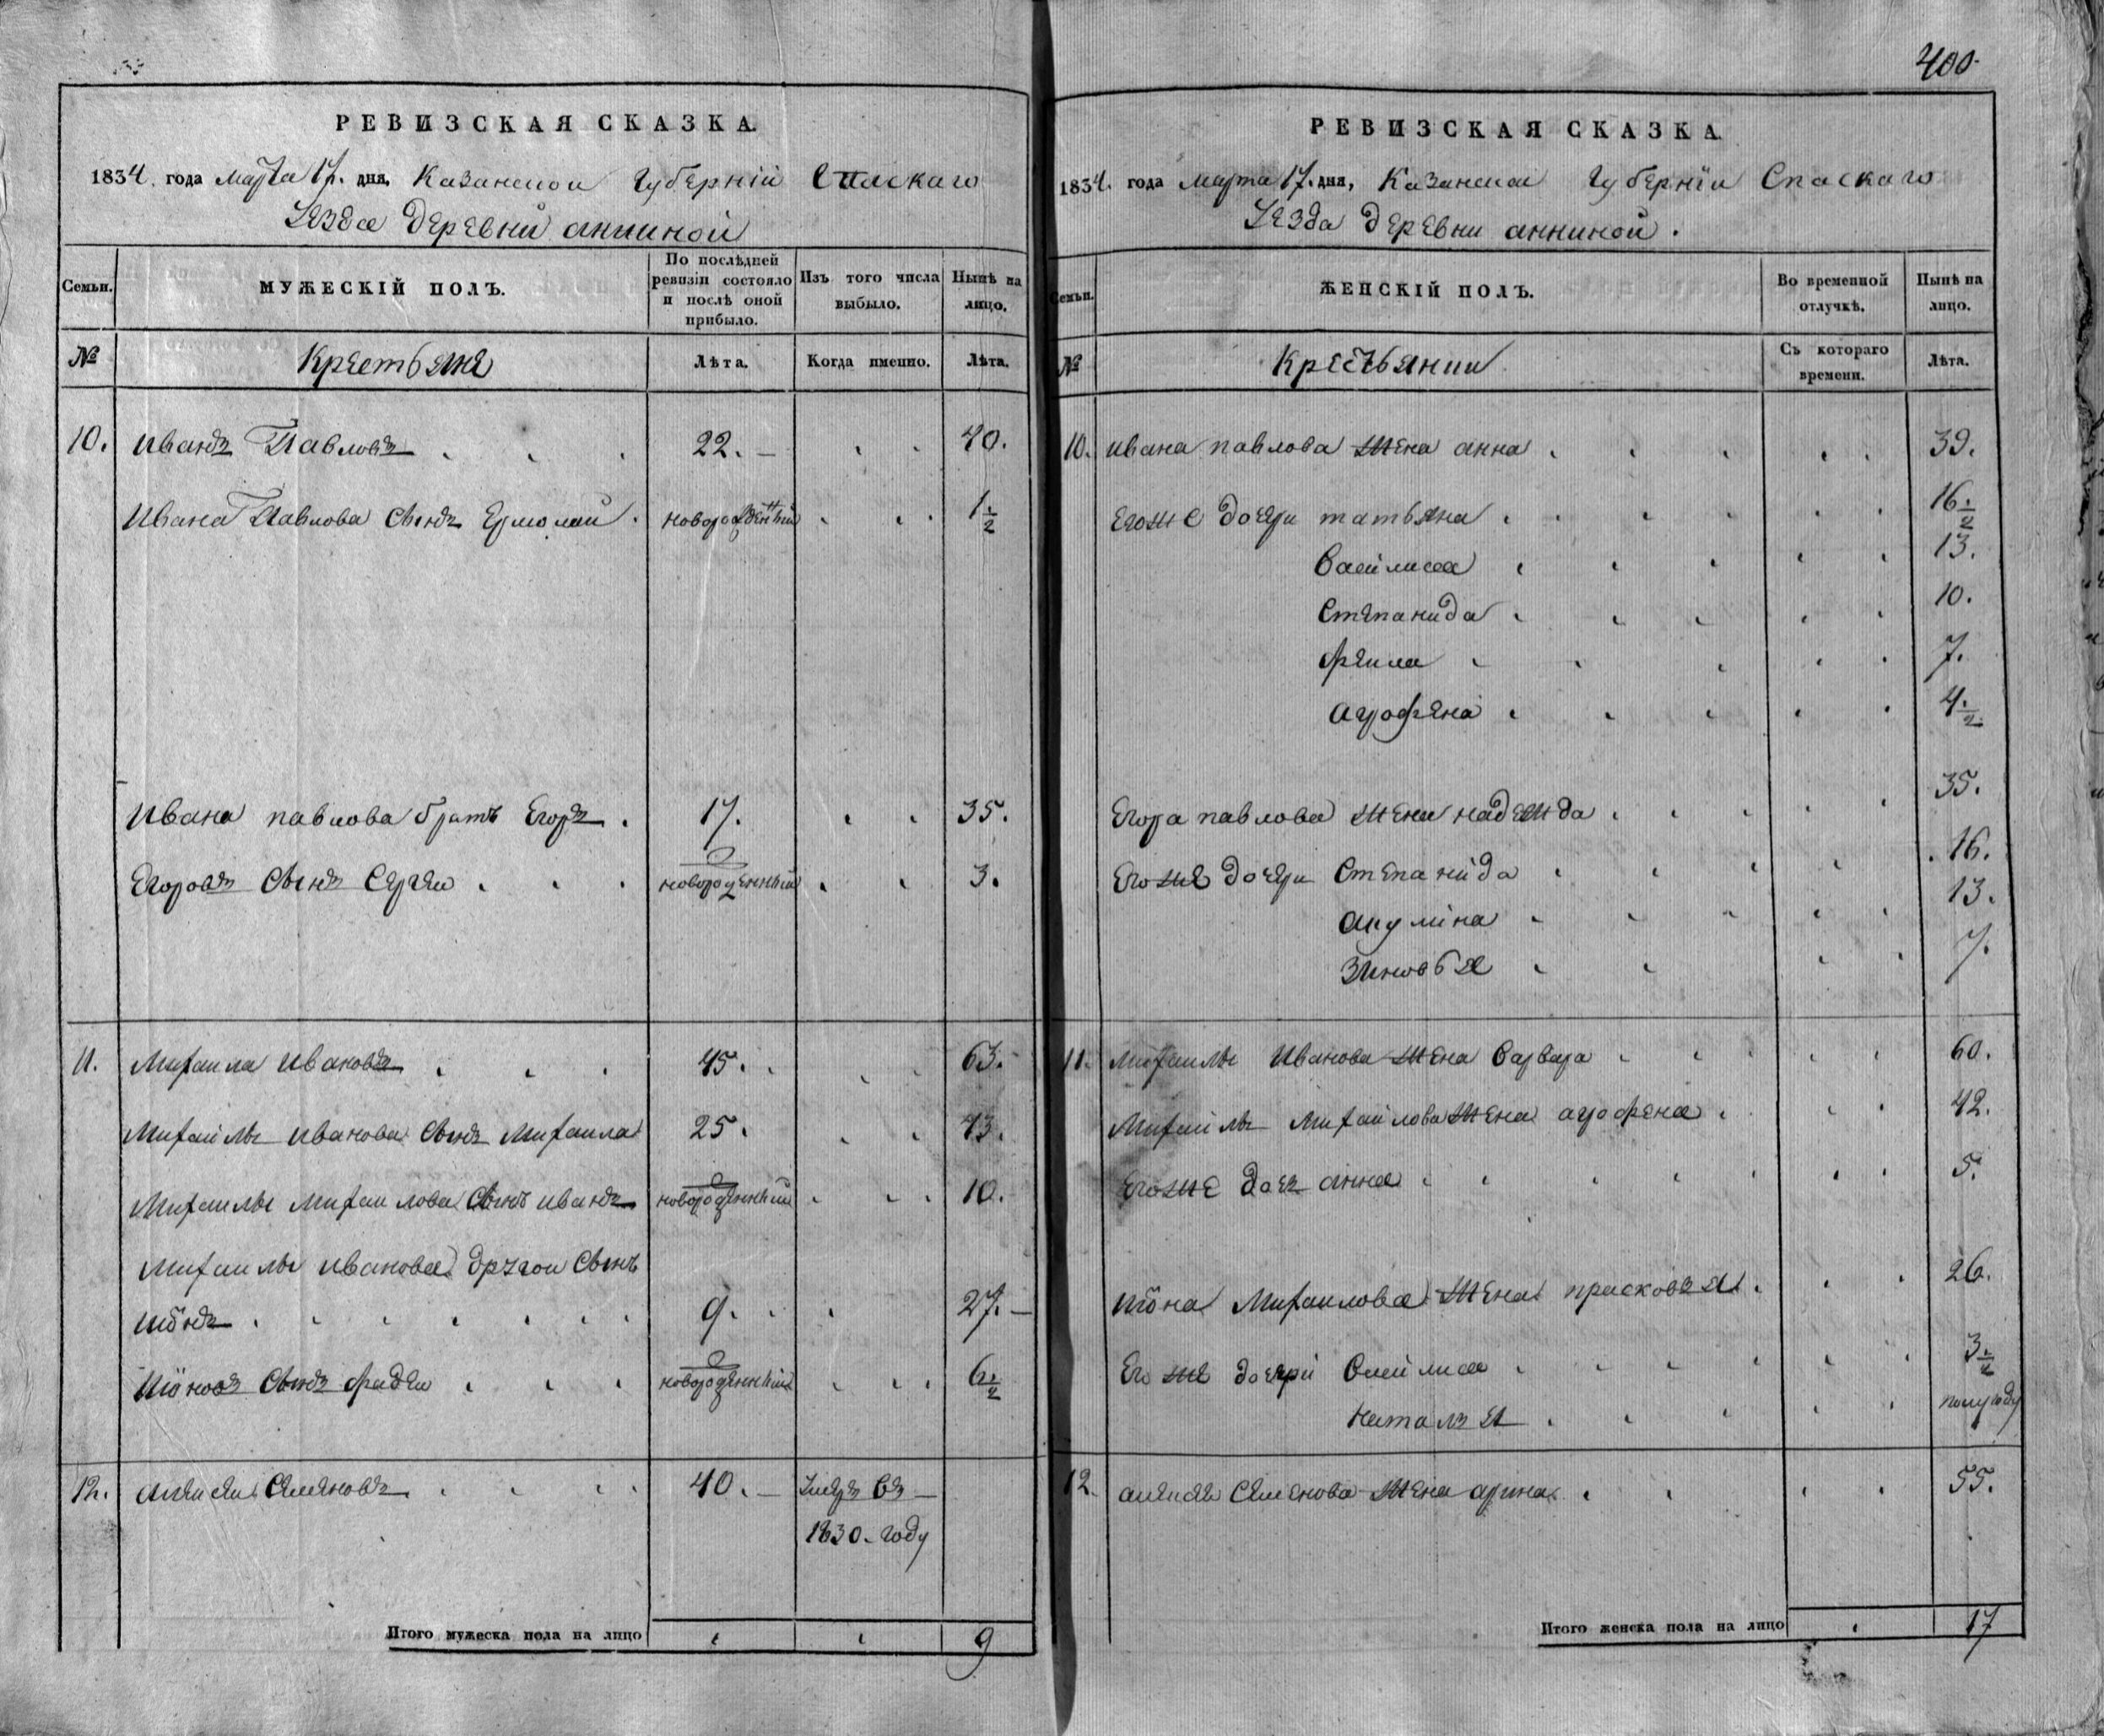 400.
РЕВИЗСКАЯ СКАЗКА.
1834. года марта 17. дня, Казанской Губерніи Спаскаго
Уезда деревни анниной
Семьи. МУЖЕСКІЙ ПОЛЪ. По послѣдней ревизіи состояло и послѣ оной прибыло. Изъ того числа выбыло. Нынѣ на лицо.
№ Крестьяне Лѣта. Когда именно. Лѣта.
10. иванъ Павловъ 22. 40.
Ивана Павлова сынъ Ермолай новорожденный 1 1/2
Ивана павлова братъ Егоръ 17. 35.
Егоровъ сынъ Сергеи новороженный 3.
11. Михаила ивановъ 45. 63.
Михаилы иванова сынъ Михаила 25. 43.
Михаилы михаилова сынъ иванъ новороженный 10.
Михаилы иванова другои сынъ
иіонъ 9. 27.
иіоновъ сынъ фадеи новороженный 6 1/2
12. алексеи Семеновъ 40. Умеръ въ
1830. году
Итого мужеска пола на лицо 9
РЕВИЗСКАЯ СКАЗКА.
1834. года марта 17. дня, Казанской Губерніи Спаскаго
Уезда деревни анниной.
Семьи. ЖЕНСКІЙ ПОЛЪ. Во временной отлучкѣ. Нынѣ на лицо.
№ Крестьянки Съ котораго времени. Лѣта.
10. ивана павлова жена анна 39.
Егоже дочери татьяна 16 1/2
василиса 13.
степанида 10.
фекла 7.
агрофена 4 1/2
Егора павлова жена надежда 35.
Егоже дочери Степанида 16.
акулина 13.
зиновья 7.
11. михаилы Иванова жена варвара 60.
Михаилы михаилова жена агрофена 42.
Егоже дочь анна 5.
иіона Михаилова жена прасковья 26.
Егоже дочери василиса 3 1/2
наталья полугоду
12. алексея Семенова жена арина 55.
Итого женска пола на лицо 17